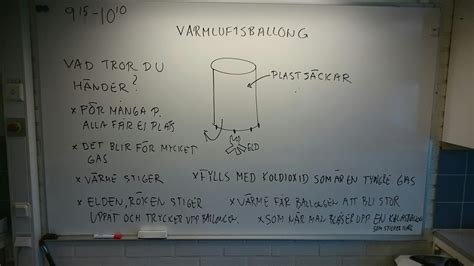 9¹⁵-10¹⁰
VARMLUFTSBALLONG
VAD TROR DU
HÄNDER?
PLASTJÄCKAR
x FÖR MÅNGA P.
ALLA FÅR EJ PLATS
ELD
x DET BLIR FÖR MYCKET
GAS
x VÄRME STIGER
x FYLLS MED KOLDIOXID SOM ÄR EN TYNGRE GAS
x ELDEN, RÖKEN STIGER
UPPÅT OCH TRYCKER UPP BALLONGEN.
x VÄRME FÅR BALLONGEN ATT BLI STOR
x SOM NÄR MAN BLÅSER UPP EN
SOM STICKER IVÄG